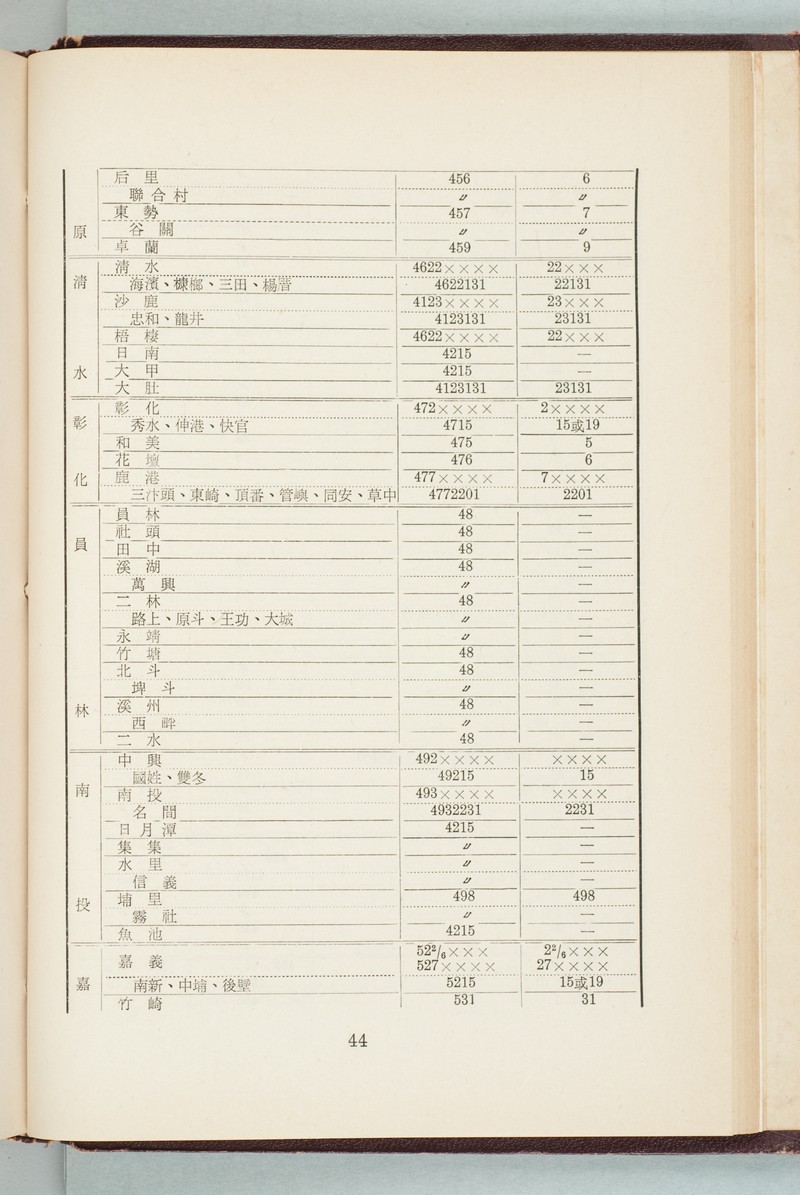 原
后里 456 6
聯合村 〃 〃
東勢 457 7
谷關 〃 〃
卓蘭 459 9
清水
清水 4622×××× 22×××
海濱、槺榔、三田、楊厝 4622131 22131
沙鹿 4123×××× 23×××
忠和、龍井 4123131 23131
梧棲 4622×××× 22×××
日南 4215 —
大甲 4215 —
大肚 4123131 23131
彰化
彰化 472×××× 2××××
秀水、伸港、快官 4715 15或19
和美 475 5
花壇 476 6
鹿港 477×××× 7××××
三汴頭、東崎、頂番、管嶼、同安、草中 4772201 2201
員林
員林 48 —
社頭 48 —
田中 48 —
溪湖 48 —
萬興 〃 —
二林 48 —
路上、原斗、王功、大城 〃 —
永靖 〃 —
竹塘 48 —
北斗 48 —
埤斗 〃 —
溪州 48 —
西畔 〃 —
二水 48 —
南投
中興 492×××× ××××
國姓、雙冬 49215 15
南投 493×××× ××××
名間 4932231 2231
日月潭 4215 —
集集 〃 —
水里 〃 —
信義 〃 —
埔里 498 498
霧社 〃 —
魚池 4215 —
嘉
嘉義 52²/₆××× 2²/₆×××
527×××× 27××××
南新、中埔、後壁 5215 15或19
竹崎 531 31
44